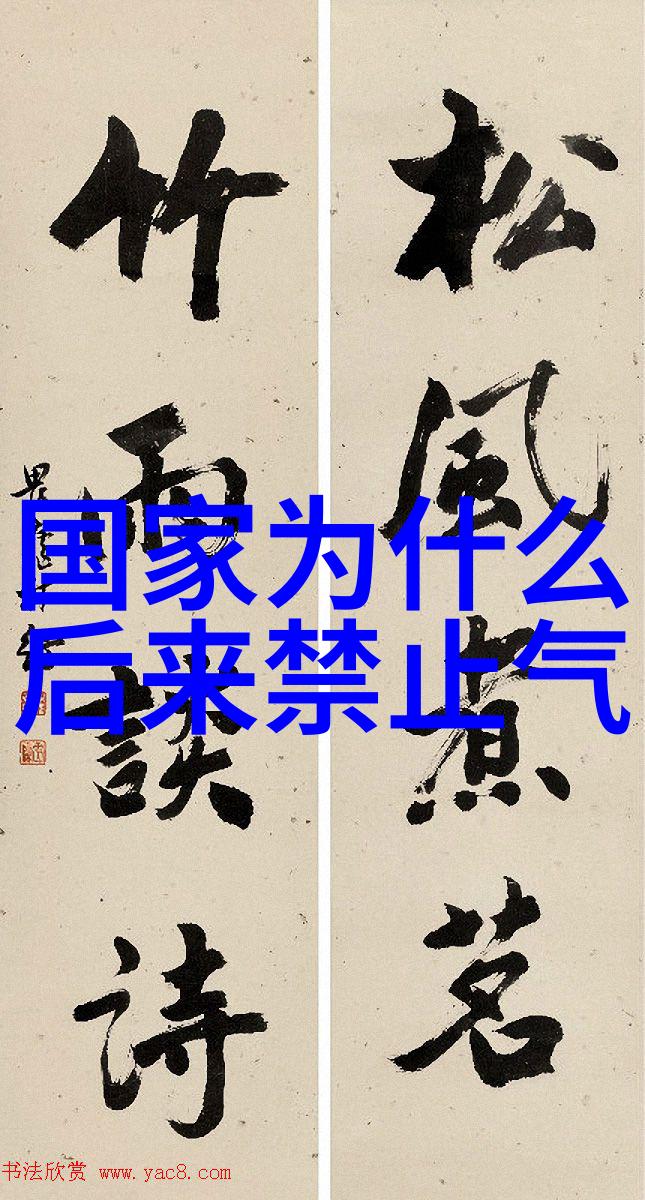 松風煮茗
竹雨談詩
国家为什么
后来禁止气
书法欣赏 www.yac8.com